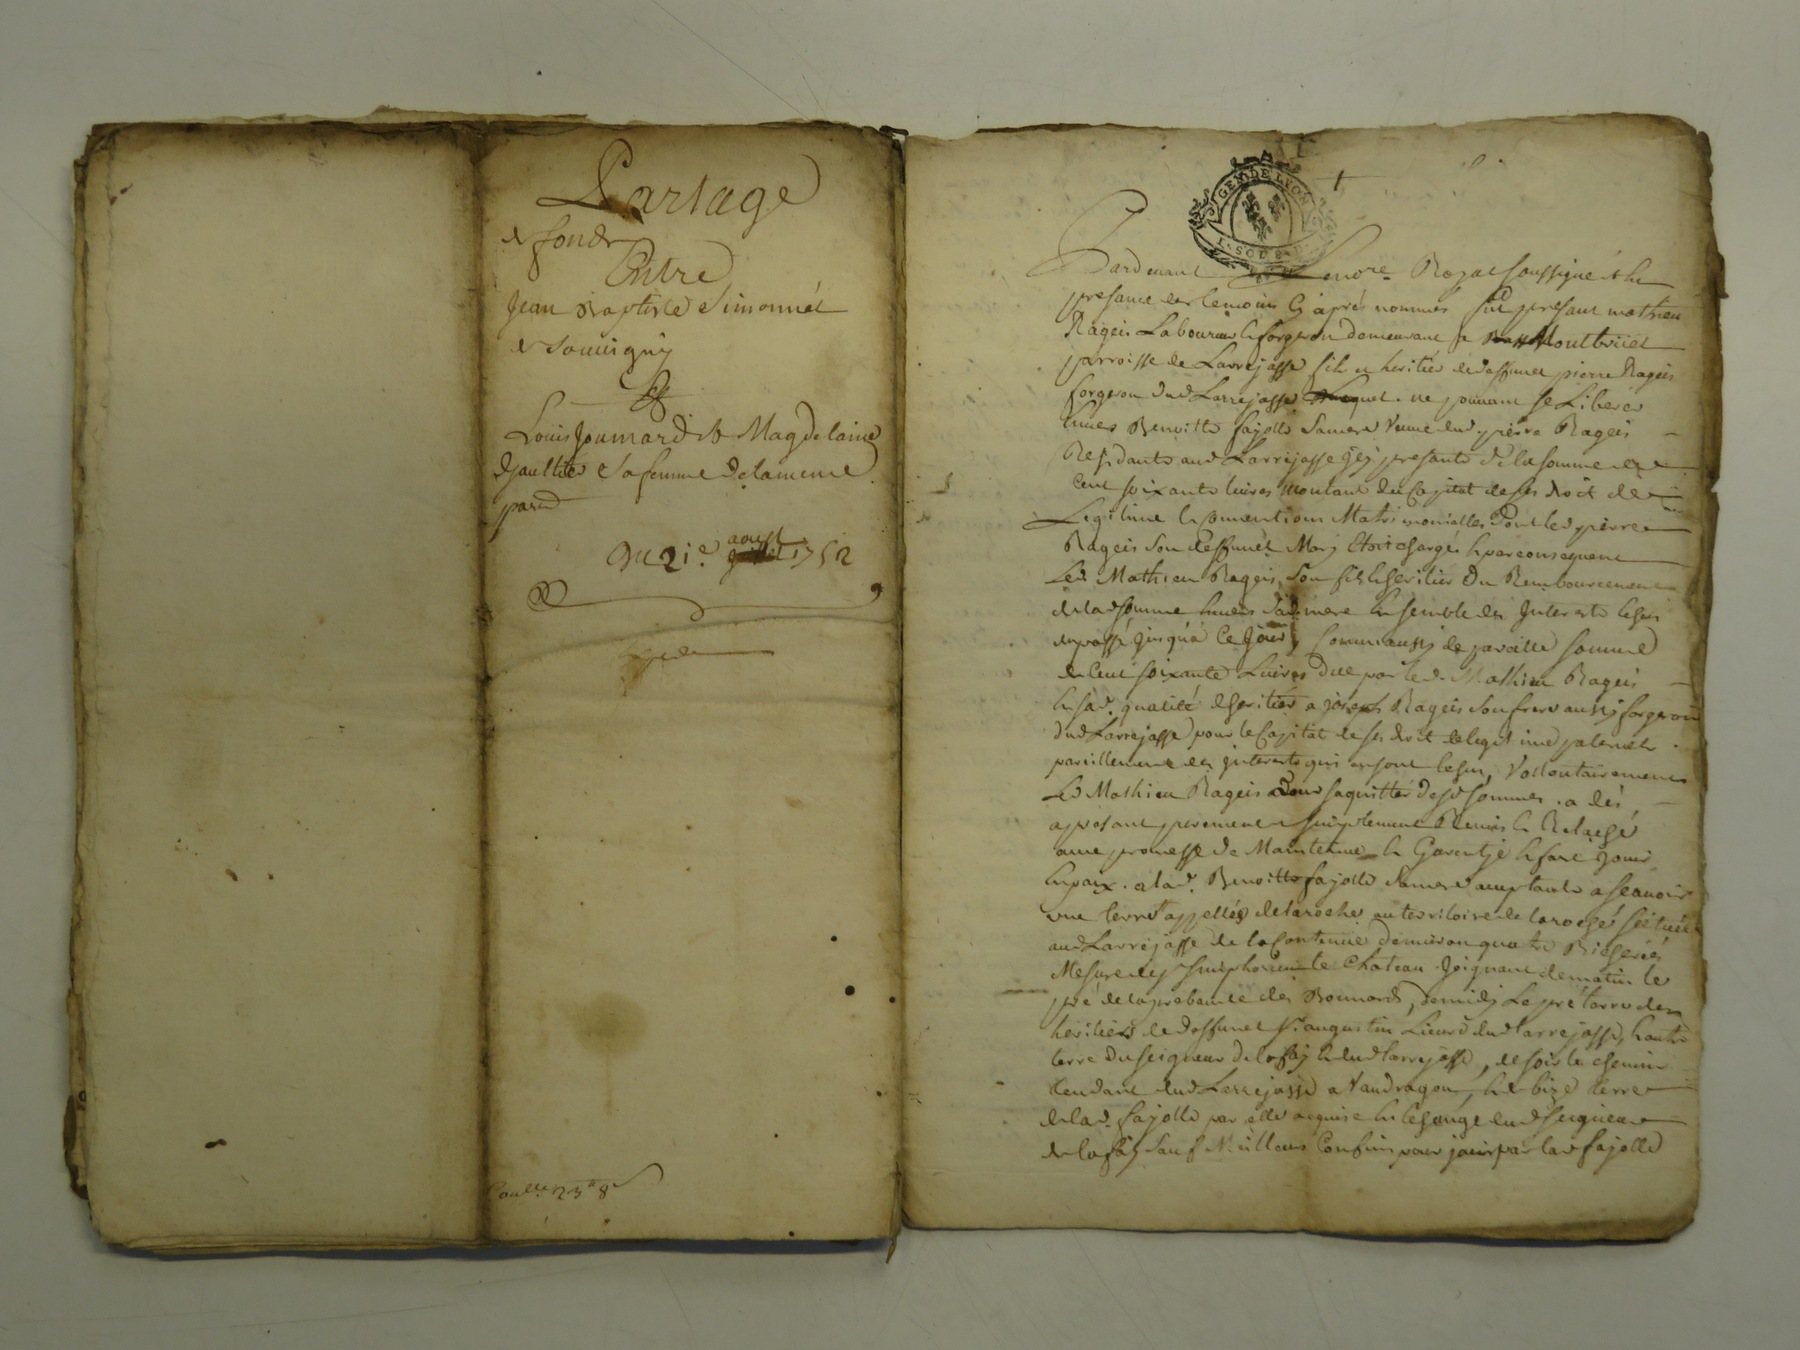 Partage
de fonds
Entre
Jean Baptiste Simonnet
de Souvigny
Et
Louis Joumard & Magdelaine
Gaultier sa femme de lameme
part
Du 21e. aoust 1752
23 8
GEN DE LYON
1. SOL 8 D
Pardevant Le nore. Royal soussigné & en
presance des temoins cy après nommés fut presant mathieu
Rageis Laboureur & forgeron demeurant a Montbriiet
parroisse de Larrejasse fils & heritier de deffunct pierre Rageis
forgeron dud Larrejasse Lequel. ne pouvant se Liberer
Envers Benoitte fajolle Samere veuve dud. pierre Rageis
Residante aud Larrejasse Icy presante de la somme de
Cent soixante livres montant du Capital de ses droit de
Legitime & Conventions Matrimonielles Dont led pierre
Rageis Son deffunct Mary Etoit chargé & par consequent
Led. Mathieu Rageis, Son fils & heritier Du Remboursement
de lad somme Envers Sad. mere Ensemble des Interests Echus
du passé jusqu'à Ce jour, Comm'aussy de pareille somme
de Cent soixante Livres due par led. Mathieu Rageis
En sad. qualité d'heritier a joseph Rageis Son frere aussy forgeron
dud Larrejasse pour le Capital de ses droit de legitime paternels
pareillement des Interests qui en sont Echus, Vollontairement
Led Mathieu Rageis pour saquitter desd sommes. a dès
apresant purement & simplement Remis & Relaché
avec promesse de Maintenue & Garentie & faire Jouir
En paix. a lad. Benoitte fajolle Samere acceptante a scavoir
une terre appellée delaroche au territoire de laroche scituée
aud Larrejasse de la Contenue d'environ quatre Bicherées
Mesure de St Simphorien le Chateau. Joignant de matin le
pré de la prebande des Bonnards, de midy Le pré & terre des
heritiers de deffunct Sr. augustin Lieurd dud Larrejasse, & autre
terre du seigneur de lafay & dud Larrejasse, de soir le chemin
tendant dud Larrejasse a Vaudragon, & de bize terre
de lad. fajolle par elle acquise En Echange dud seigneur
de lafay Sauf Meilleurs Confins pour jouir par lad fajolle